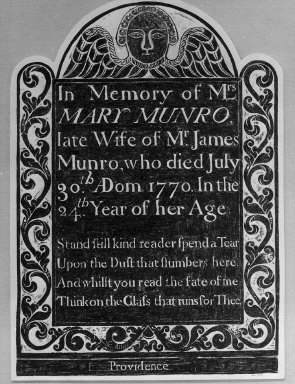 In Memory of Mrs
MARY MUNRO,
late Wife of Mr. James
Munro, who died July
30th ADom. 1770. In the
24th Year of her Age
Stand still kind reader spend a Tear
Upon the Dust that slumbers here.
And whilst you read the fate of me
Think on the Glass that runs for Thee.
Providence